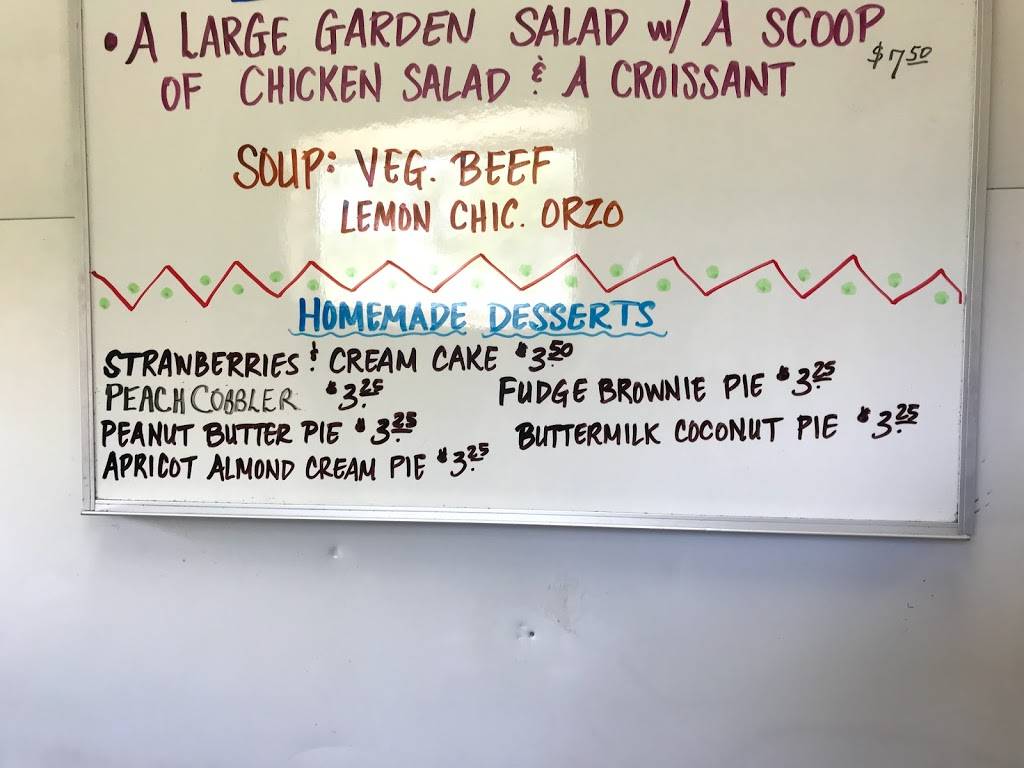 • A LARGE GARDEN SALAD w/ A SCOOP
OF CHICKEN SALAD & A CROISSANT $7.50
SOUP: VEG. BEEF
LEMON CHIC. ORZO
HOMEMADE DESSERTS
STRAWBERRIES & CREAM CAKE $3.50
PEACH COBBLER $3.25
FUDGE BROWNIE PIE $3.25
PEANUT BUTTER PIE $3.25
BUTTERMILK COCONUT PIE $3.25
APRICOT ALMOND CREAM PIE $3.25